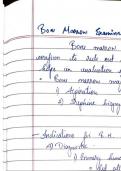 Bone Marrow Examina
Bone marrow
to rule out
helps an evaluation
• Bone marrow may
i) Aspiration
ii) Trephine biopsy
Indications for B.M.
A) Diagnostic